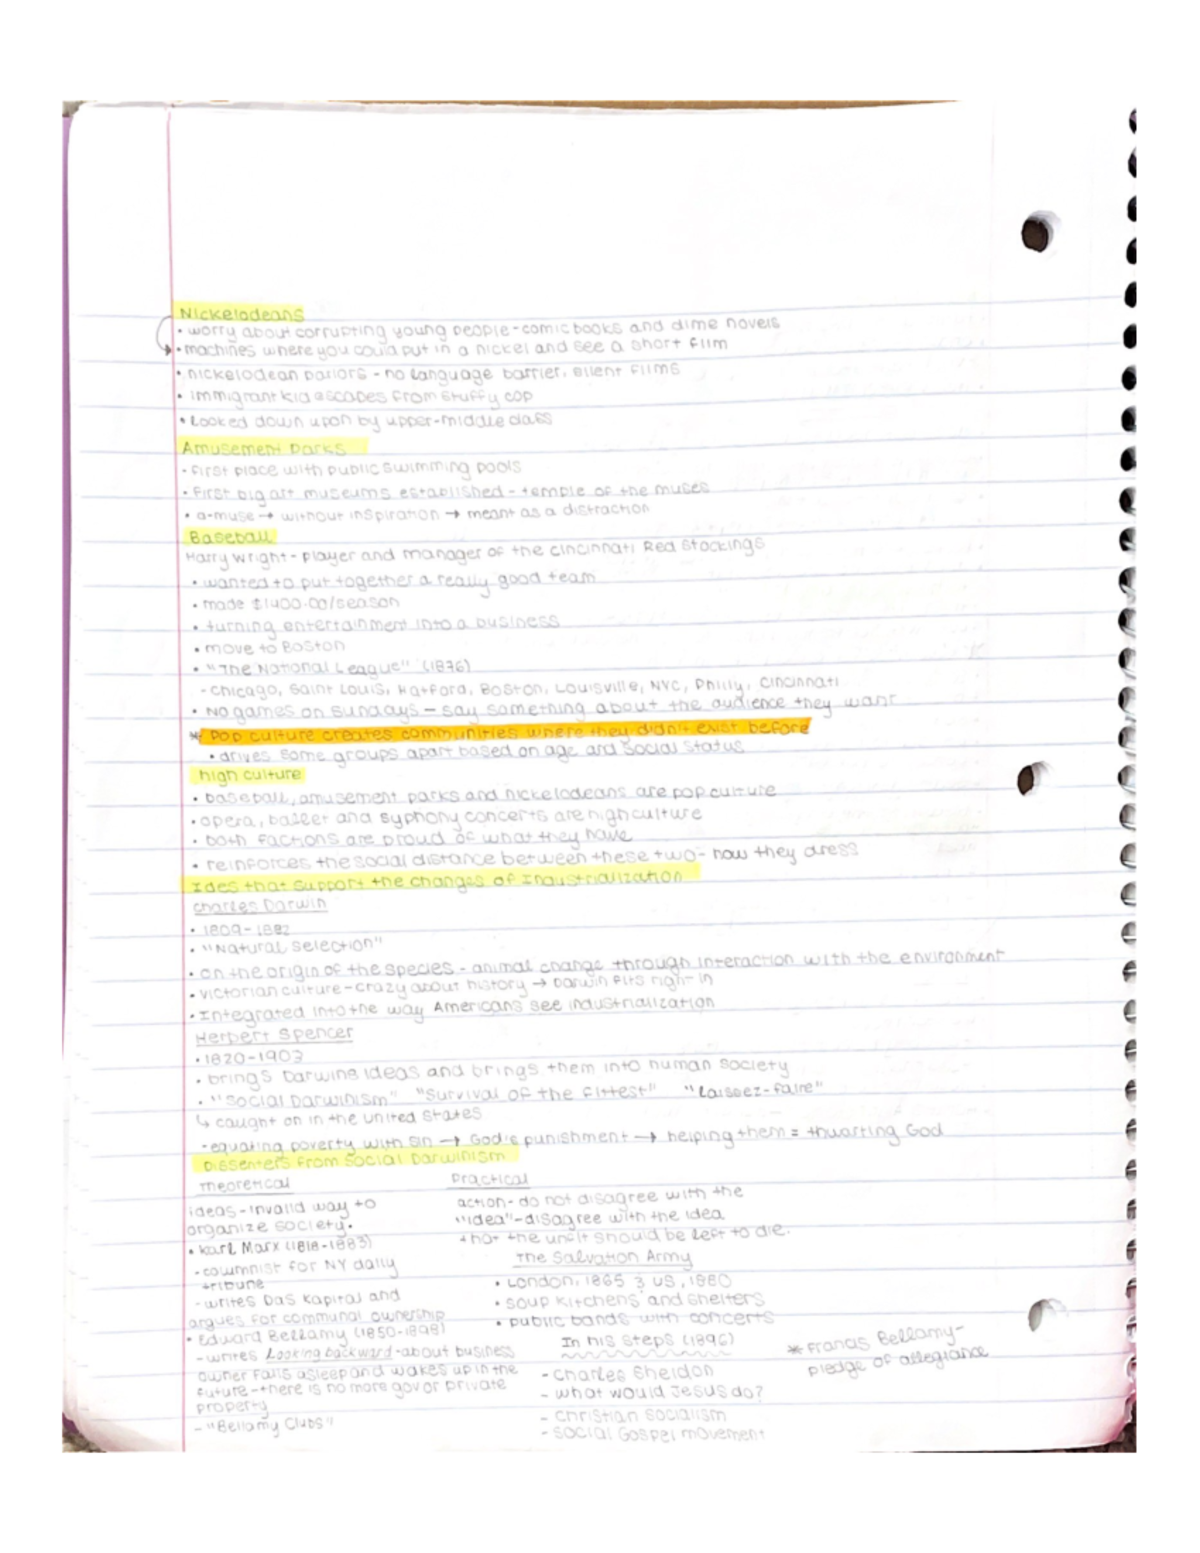 Nickelodeans
• worry about corrupting young people - comic books and dime novels
• machines where you could put in a nickel and see a short film
• nickelodean parlors - no language barrier, silent films
• immigrant kid escapes from stuffy
• Looked down upon by upper-middle class
Amusement Parks
• First place with public swimming pools
• First big art museums established - temple of the muses
• a-muse → without inspiration → meant as a distraction
Baseball
Harry Wright - player and manager of the Cincinnati Red Stockings
• wanted to put together a really good team
• made $1400.00/season
• turning entertainment into a business
• move to Boston
• "The National League" (1876)
- Chicago, Saint Louis, Hatford, Boston, Louisville, NYC, Philly, Cincinnati
• No games on Sundays - say something about the audience they want
* Pop culture creates communities where they didn't exist before
• drives some groups apart based on age and social status
high culture
• baseball, amusement parks and nickelodeans are pop culture
• opera, ballet and syphony concerts are high culture
• both factions are proud of what they have
• reinforces the social distance between these two - how they dress
Ides that support the changes of Industrialization
Charles Darwin
• 1809-1882
• "Natural selection"
• on the origin of the species - animal change through interaction with the environment
• victorian culture - crazy about history → Darwin fits right in
• Integrated into the way Americans see industrialization
Herbert Spencer
• 1820-1903
• brings Darwins ideas and brings them into human society
• "Social Darwinism" "Survival of the fittest" "Laissez-faire"
↳ caught on in the united states
- equating poverty with sin → God's punishment → helping them = thwarting God
Dissenters from Social Darwinism
Theoretical
ideas - invalid way to
organize society.
• Karl Marx (1818-1883)
- columnist for NY daily
tribune
- writes Das Kapital and
argues for communal ownership
• Edward Bellamy (1850-1898)
- writes Looking backward - about business
owner falls asleep and wakes up in the
future - there is no more gov or private
property
- "Bellamy Clubs"
Practical
action - do not disagree with the
"idea" - disagree with the idea
that the unfit should be left to die.
The Salvation Army
• London, 1865 & US, 1880
• soup kitchens and shelters
• public bands with concerts
In his steps (1896)
- Charles Sheldon
- what would Jesus do?
- Christian socialism
- Social Gospel movement
* Francis Bellamy -
pledge of allegiance